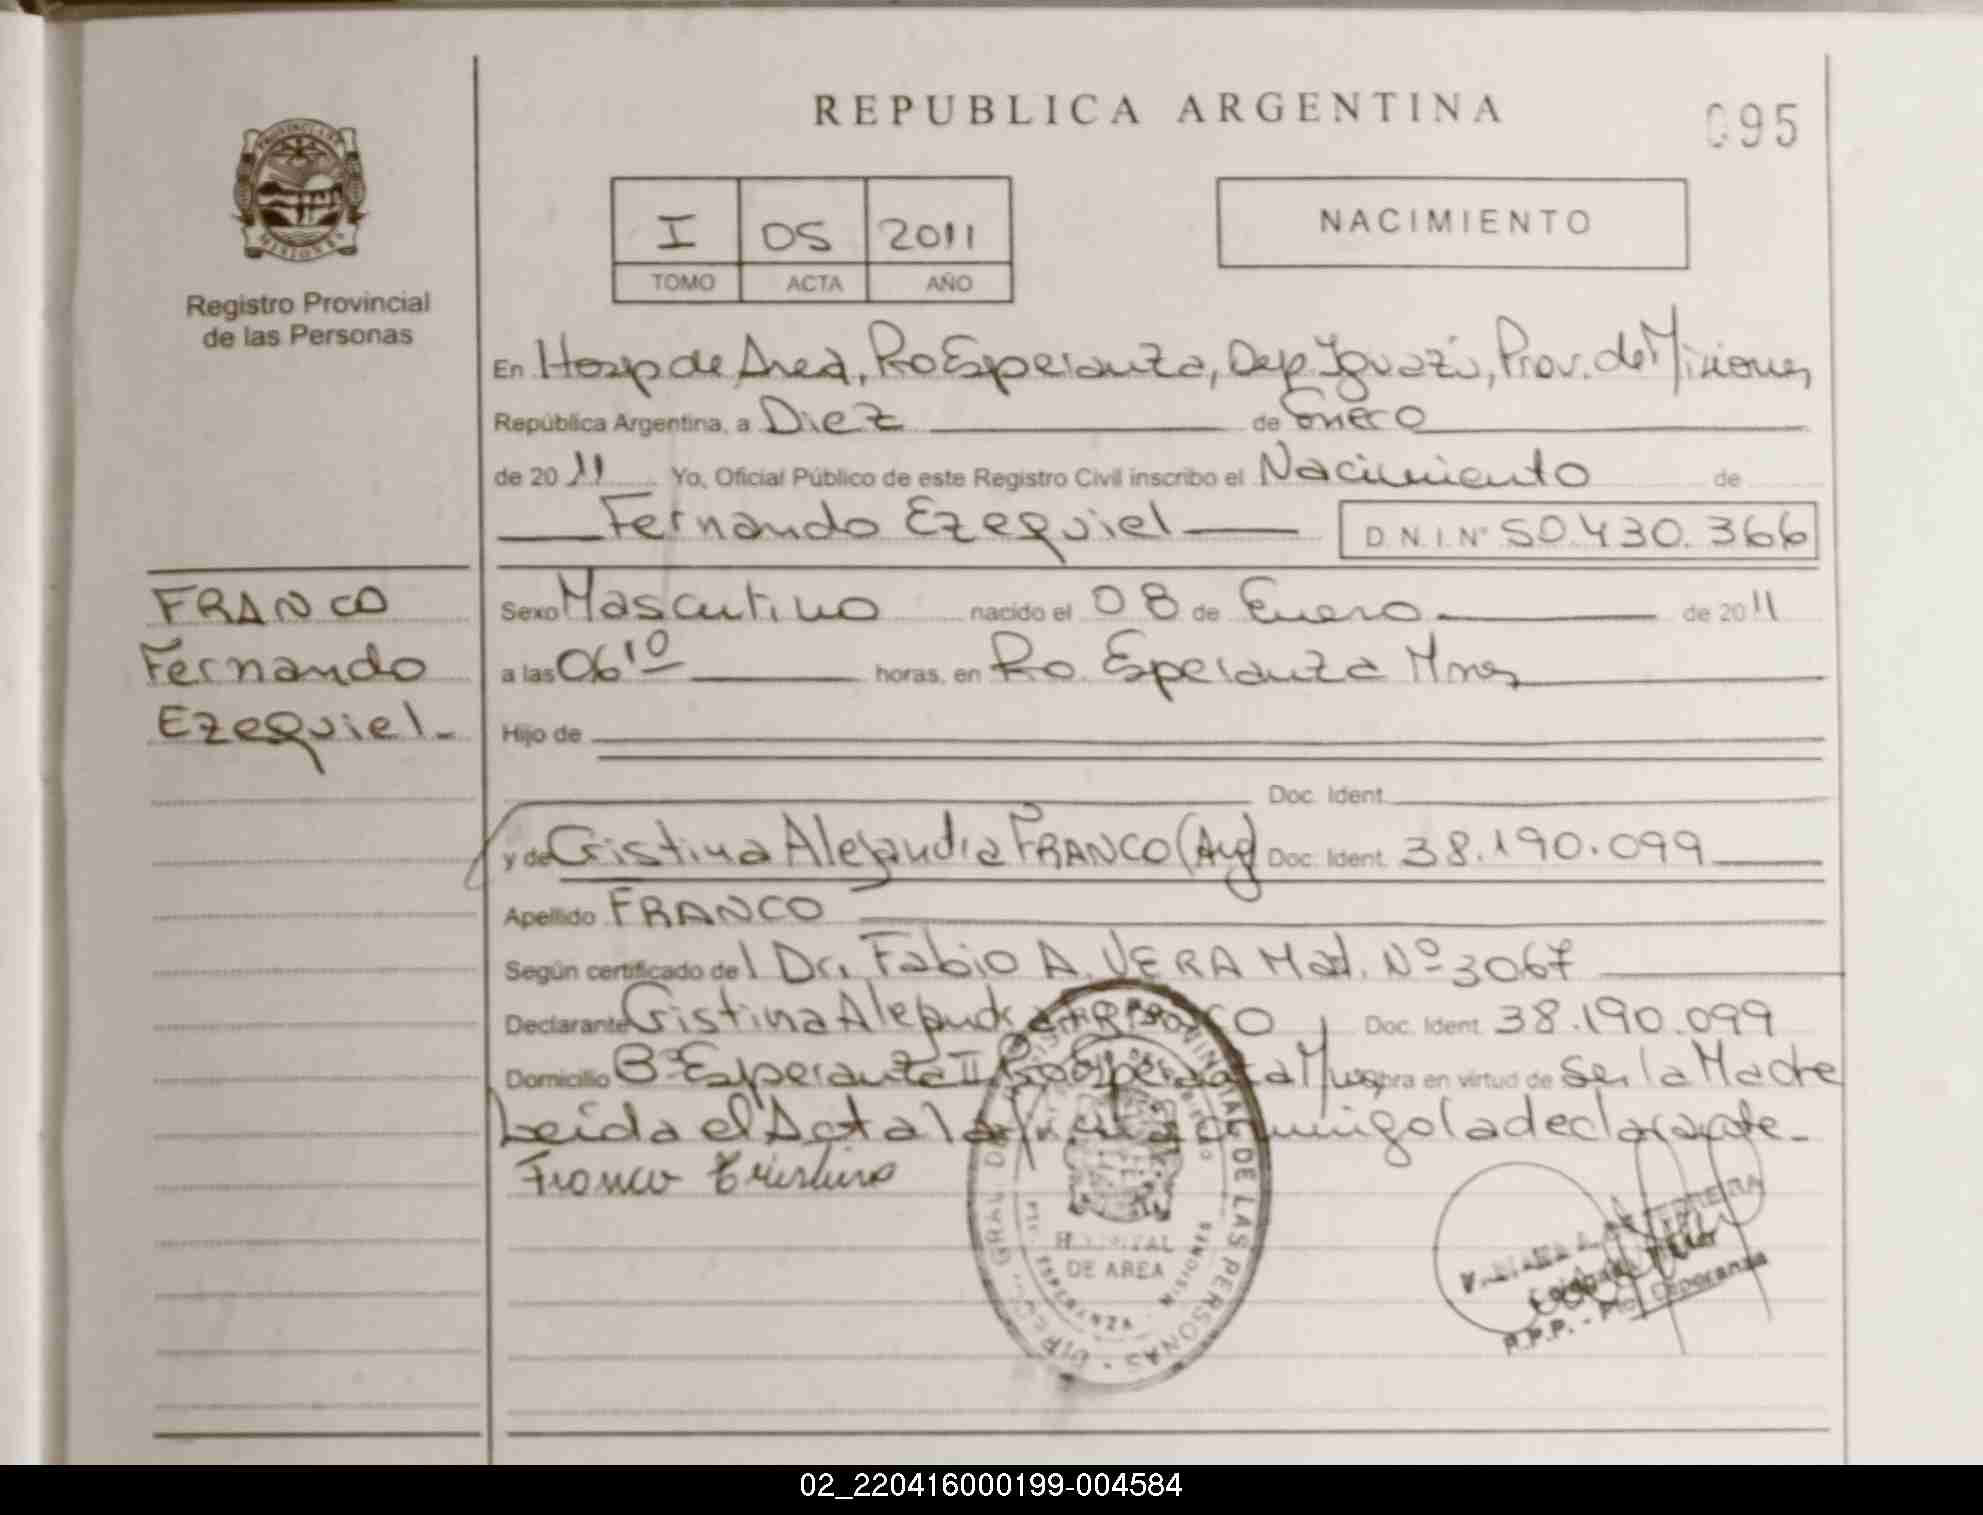 REPUBLICA ARGENTINA
095
PROVINCIA DE
MISIONES
Registro Provincial
de las Personas
I 05 2011
TOMO ACTA AÑO
NACIMIENTO
En Hosp de Area, Pto Esperanza, Dep. Iguazú, Prov. de Misiones,
República Argentina, a Diez de Enero
de 2011 Yo, Oficial Público de este Registro Civil inscribo el Nacimiento de
Fernando Ezequiel D.N.I. Nº 50.430.366
FRANCO
Fernando
Ezequiel.-
Sexo Masculino nacido el 08 de Enero de 2011
a las 06 10 horas, en Pto. Esperanza Mnes
Hijo de
Doc. Ident.
y de Cristina Alejandra FRANCO (Arg) Doc. Ident. 38.190.099
Apellido FRANCO
Según certificado del Dr. Fabio A. VERA Mat. Nº 3067
Declarante Cristina Alejandra FRANCO Doc. Ident. 38.190.099
Domicilio Bº Esperanza II Pto Esperanza Mnes, obra en virtud de Ser la Madre
Leida el Acta la firma conmigo la declarante.-
Franco Cristina
HOSPITAL
DE AREA
ESPERANZA - MISIONES
REGISTRO PROVINCIAL DE LAS PERSONAS
R.P.P. - Pto. Esperanza
02_220416000199-004584